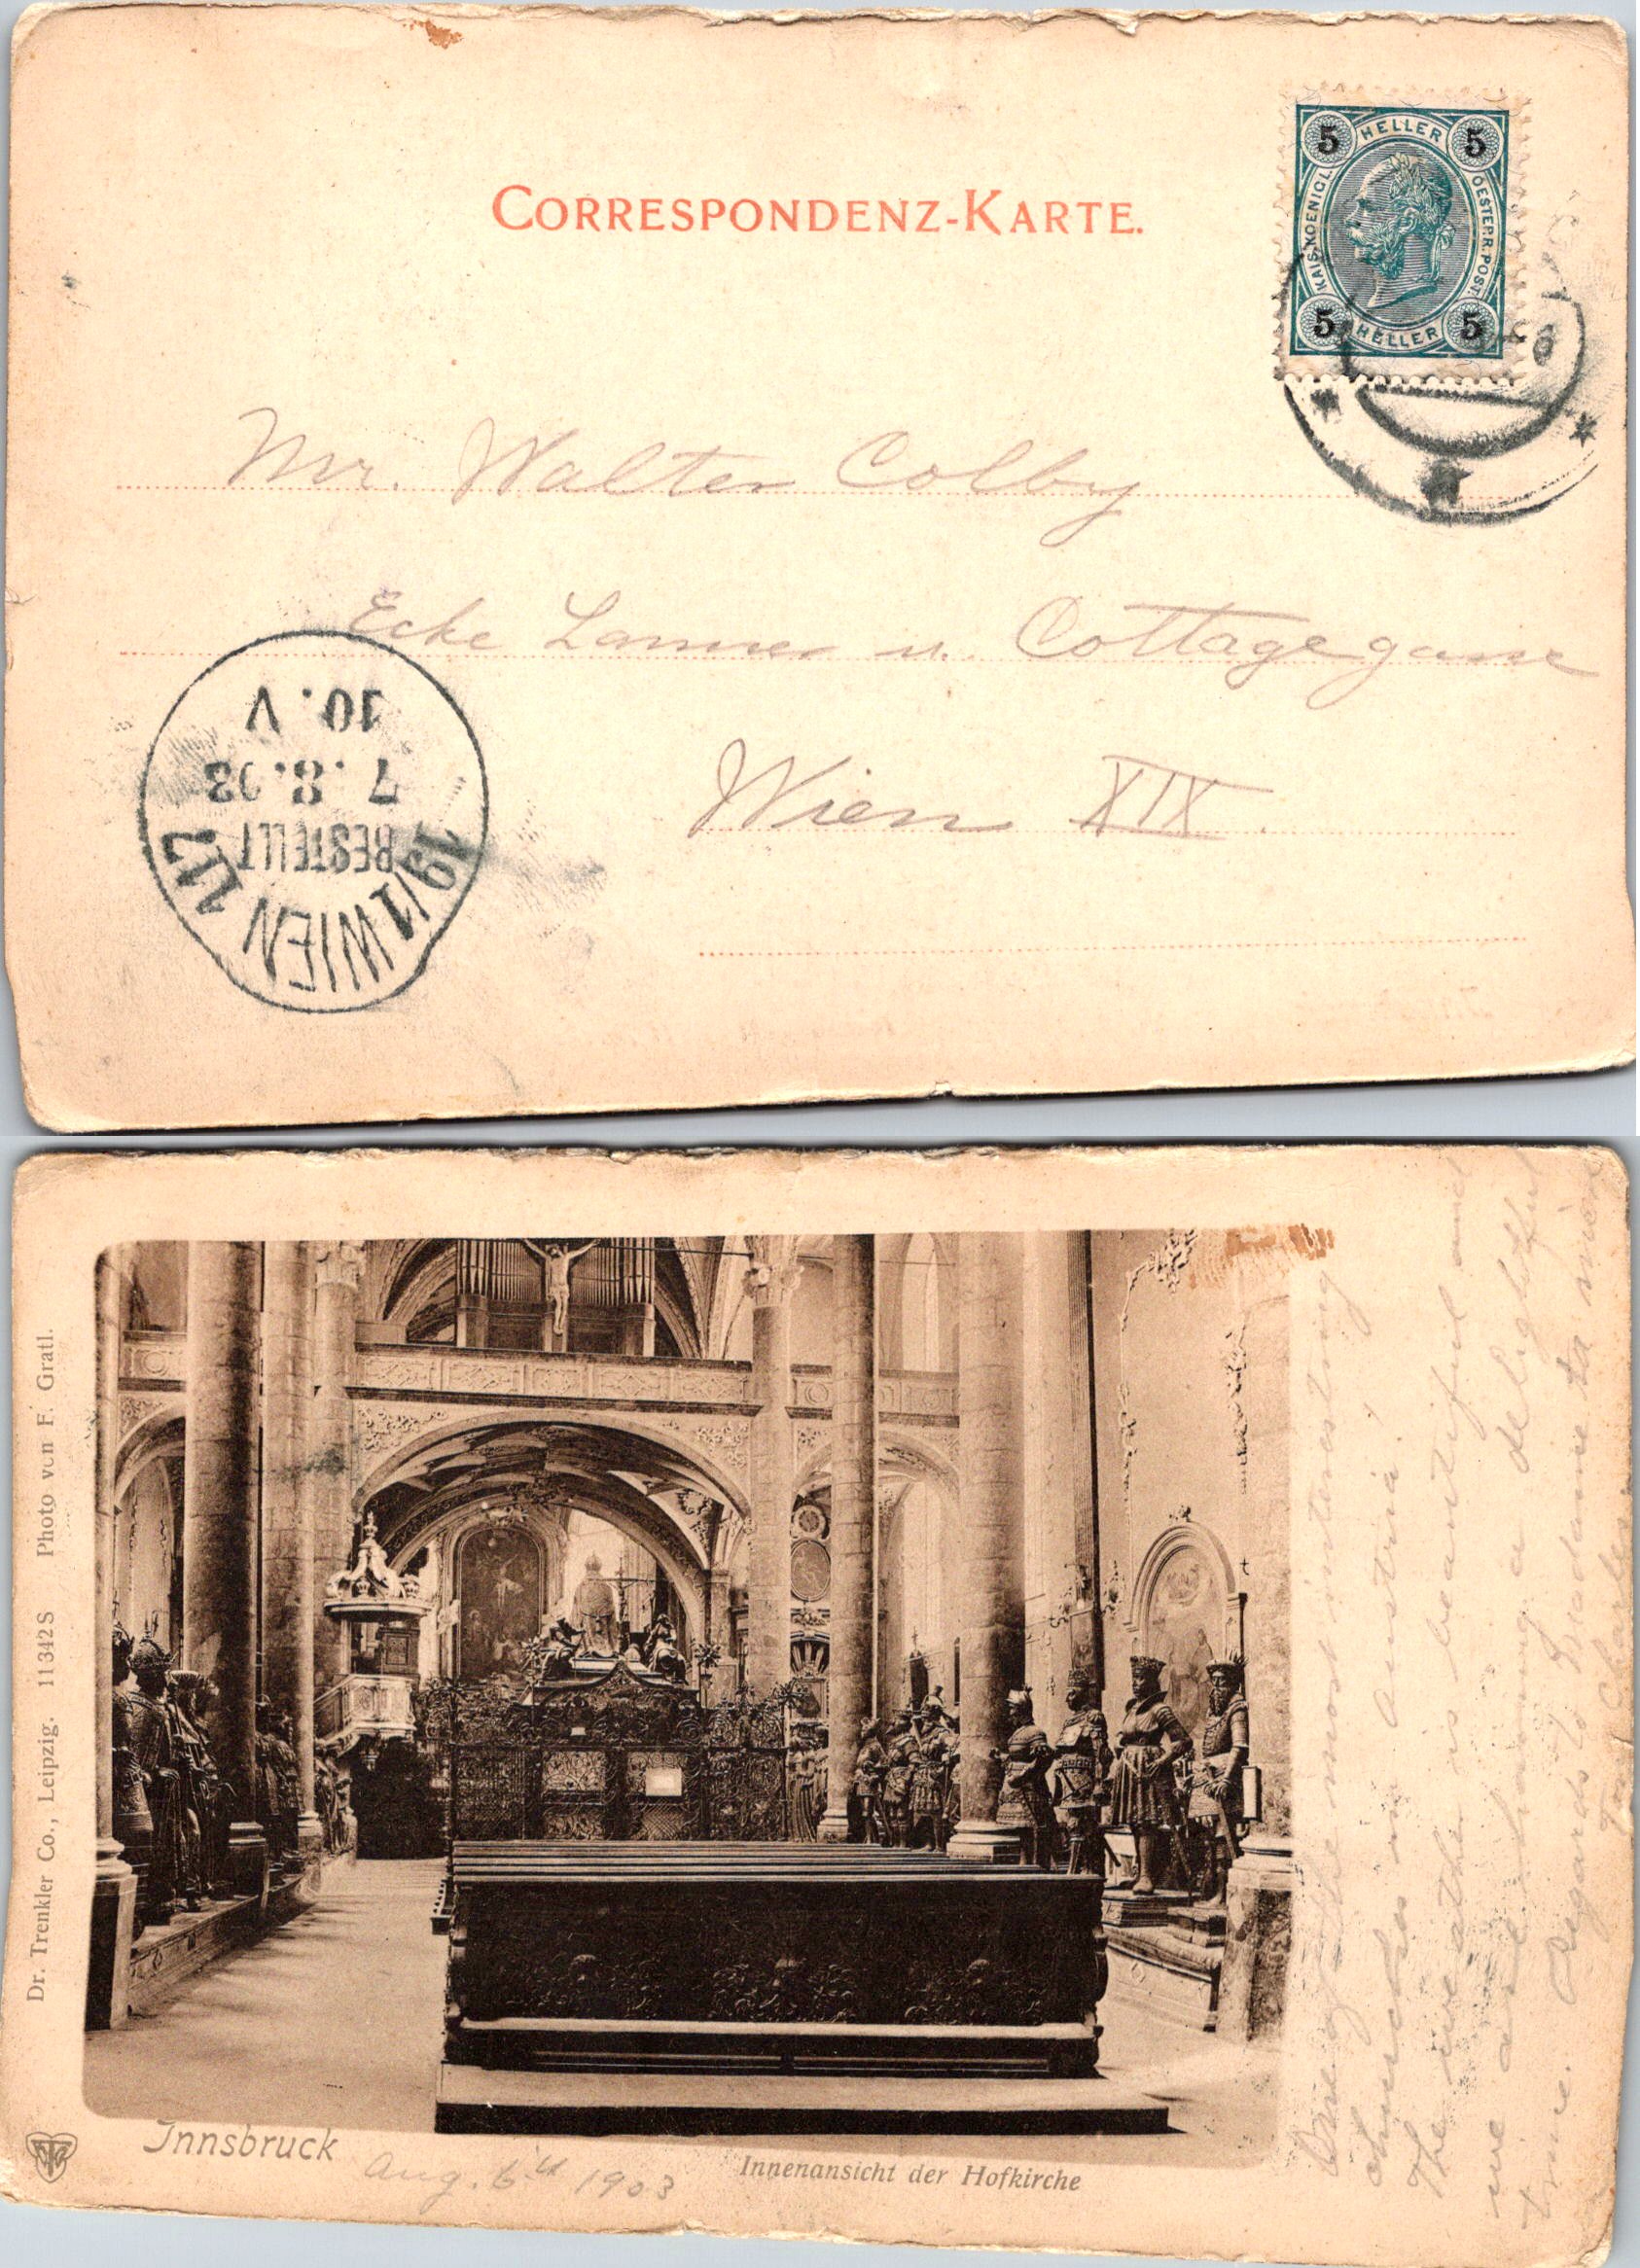 CORRESPONDENZ-KARTE.
5 HELLER 5
KAIS. KOENIGL. OESTERR. POST.
5 HELLER 5
Mr. Walter Colby
Ecke Lanner u. Cottagegasse
Wien XIX.
10. V
7. 8. 03
BESTELLT
19/1 WIEN 117
Dr. Trenkler Co., Leipzig. 11342 S Photo von F. Gratl.
Innsbruck
Aug. 6th 1903
Innenansicht der Hofkirche
One of the most interesting
churches in Austria!
The weather is beautiful and
we are having a delightful
time. Regards to Madame
Charles